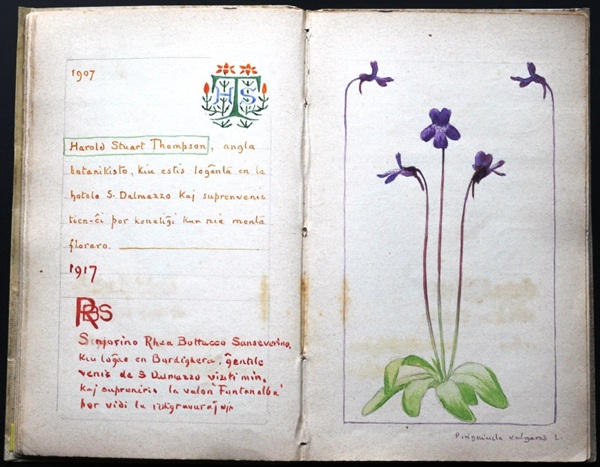 1907
HTS
Harold Stuart Thompson, angla
botanikisto, kiu estis loĝanta en la
hotelo S. Dalmazzo kaj suprenvenis
tien-ĉi por konatiĝi kun nia monta
floraro.
1917
RBS
Sinjorino Rhea Buttacco Sanseverino,
kiu loĝas en Bordighera, ĝentile
venis de S Dalmazzo viziti min,
kaj supreniris la valon Fontanalba
por vidi la
Pinguicula vulgaris L.